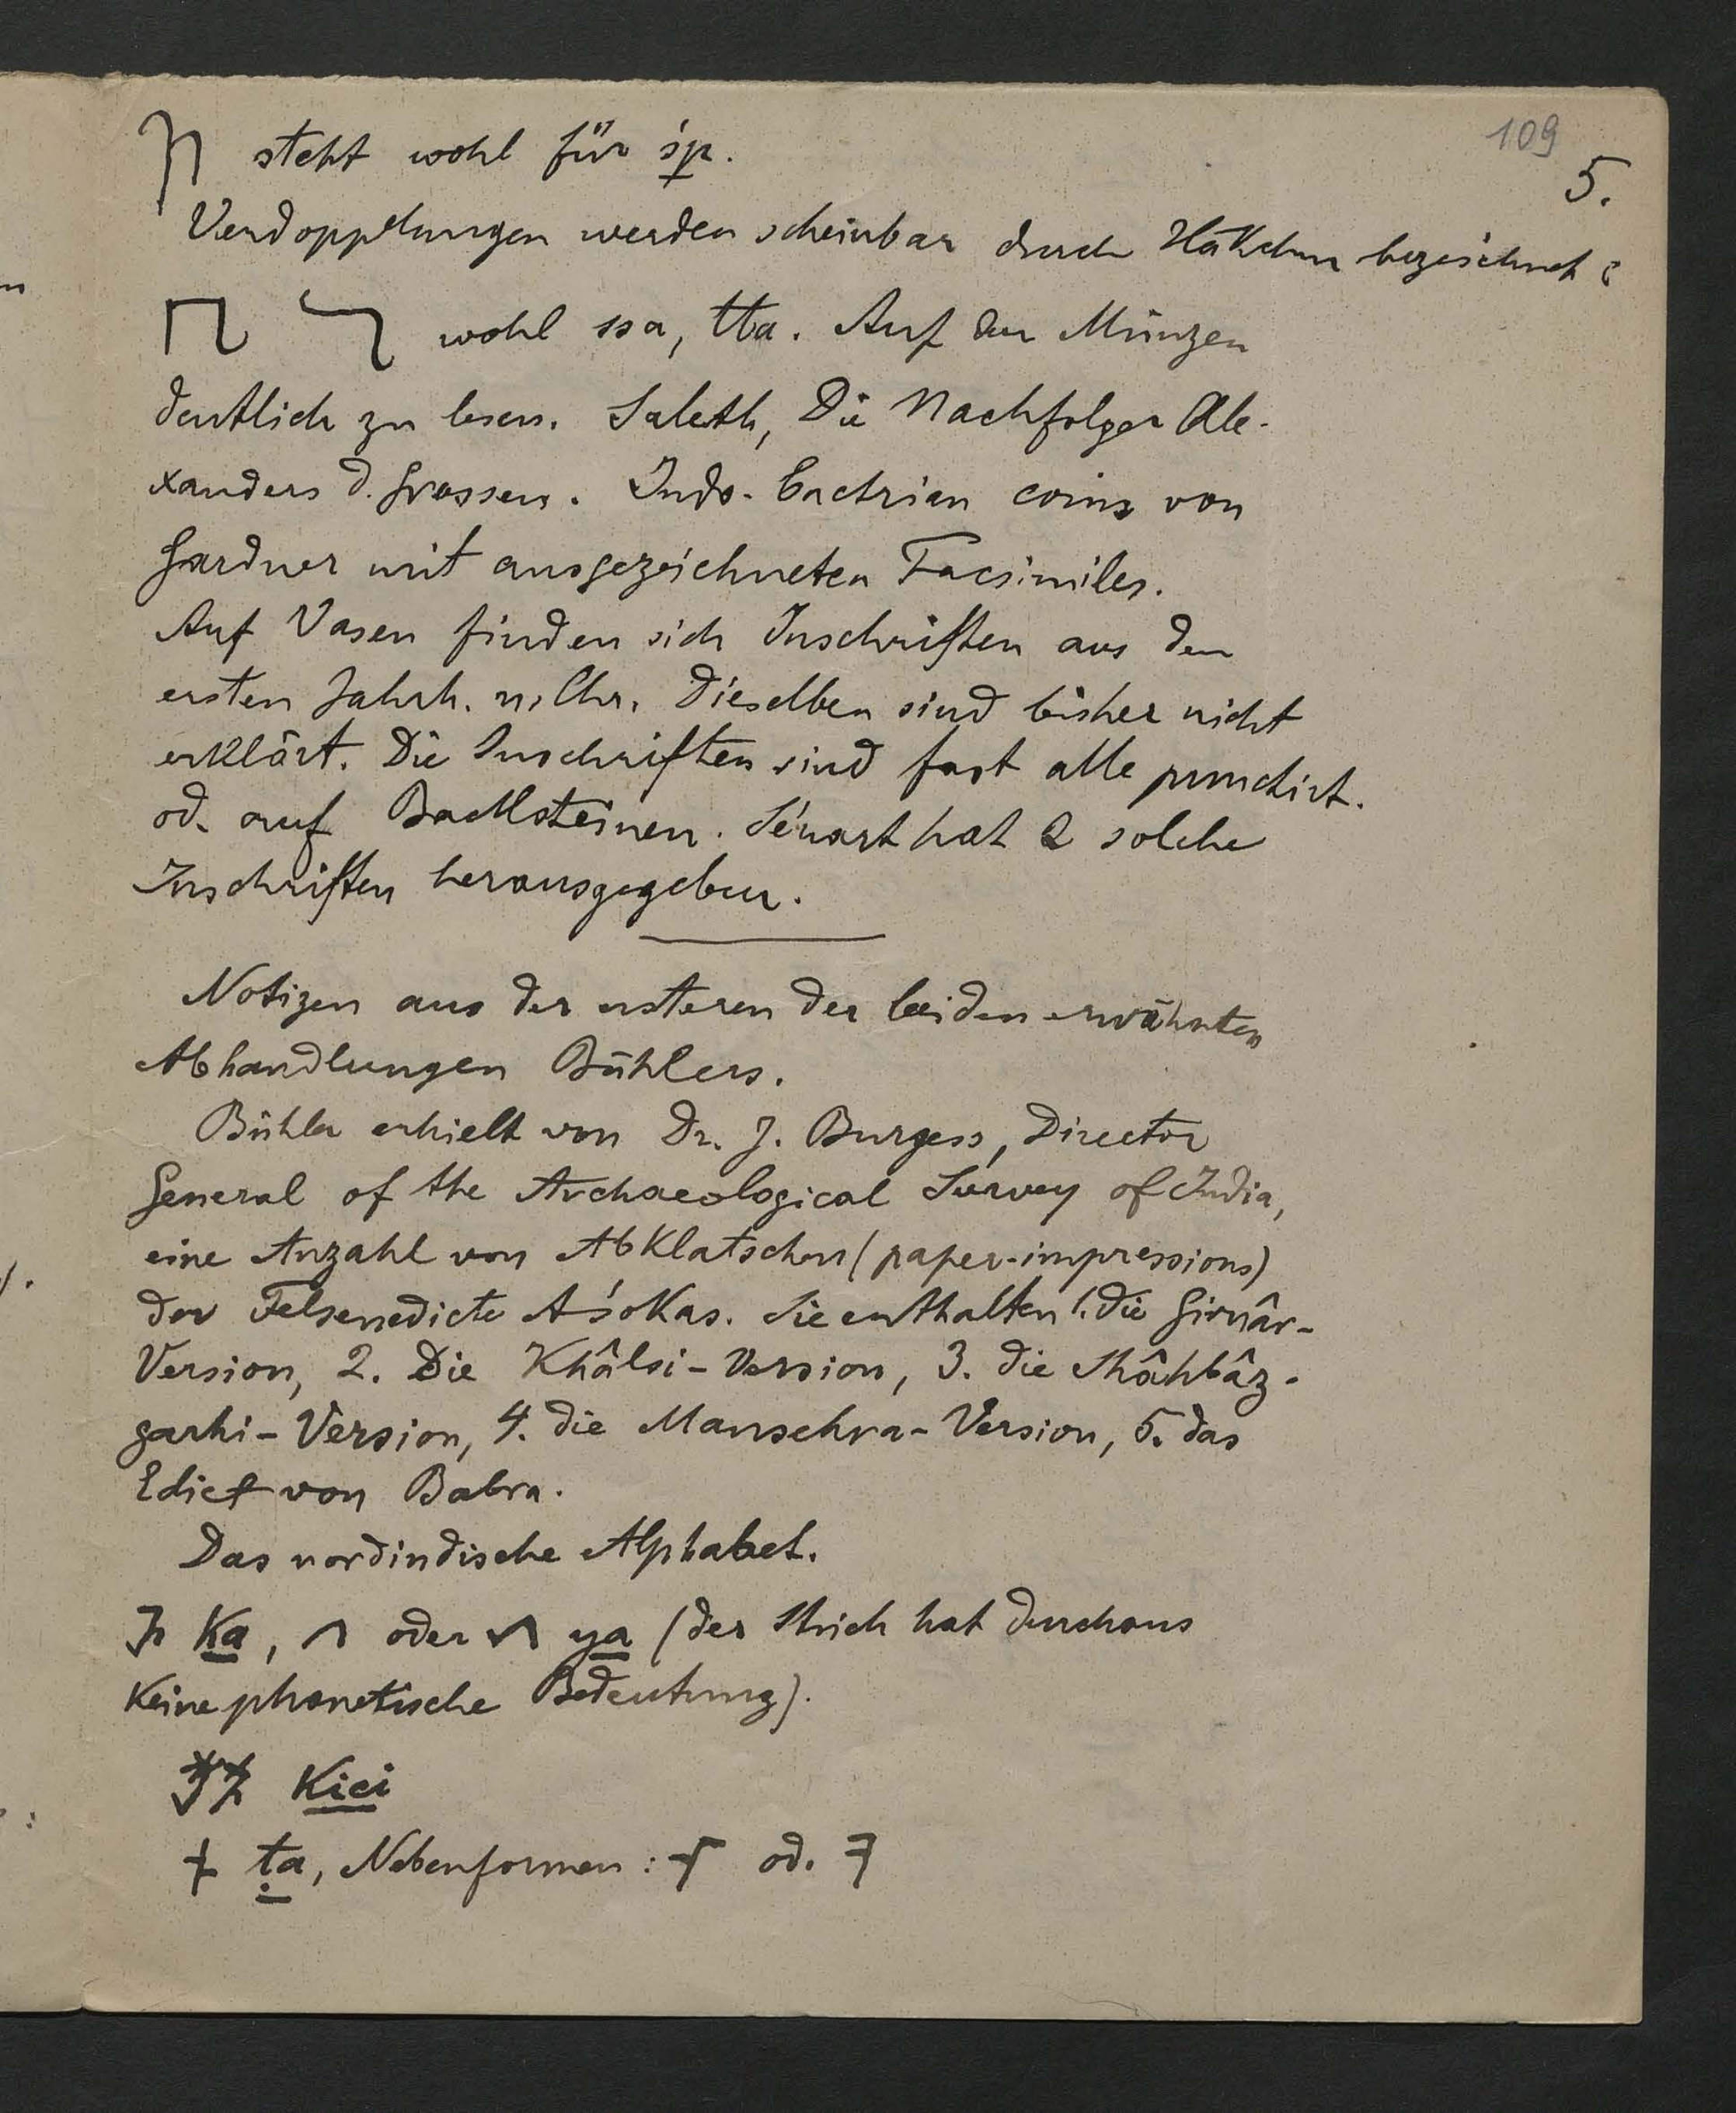 109
5.
steht wohl für śp.
Verdopplungen werden scheinbar durch Häkchen bezeichnet:
wohl ssa, tta. Auf den Münzen
deutlich zu lesen. Saleth, Die Nachfolger Ale-
xanders d. Grossen. Indo-bactrian coins von
Gardner mit ausgezeichneten Facsimiles.
Auf Vasen finden sich Inschriften aus dem
ersten Jahrh. n. Chr. Dieselben sind bisher nicht
erklärt. Die Inschriften sind fast alle punctirt.
od. auf Backsteinen. Sénart hat 2 solche
Inschriften herausgegeben.
Notizen aus der ersteren der beiden erwähnten
Abhandlungen Bühlers.
Bühler erhielt von Dr. J. Burgess, Director
General of the Archaeological Survey of India,
eine Anzahl von Abklatschen (paper-impressions)
der Felsenedicte Aśokas. Sie enthalten 1. die Girnâr-
Version, 2. Die Khâlsi-Version, 3. die Shâhbâz-
garhi-Version, 4. die Mansehra-Version, 5. das
Edict von Babra.
Das nordindische Alphabet.
ka, oder ya (der Strich hat durchaus
keine phonetische Bedeutung).
kici
ṭa, Nebenformen: od.